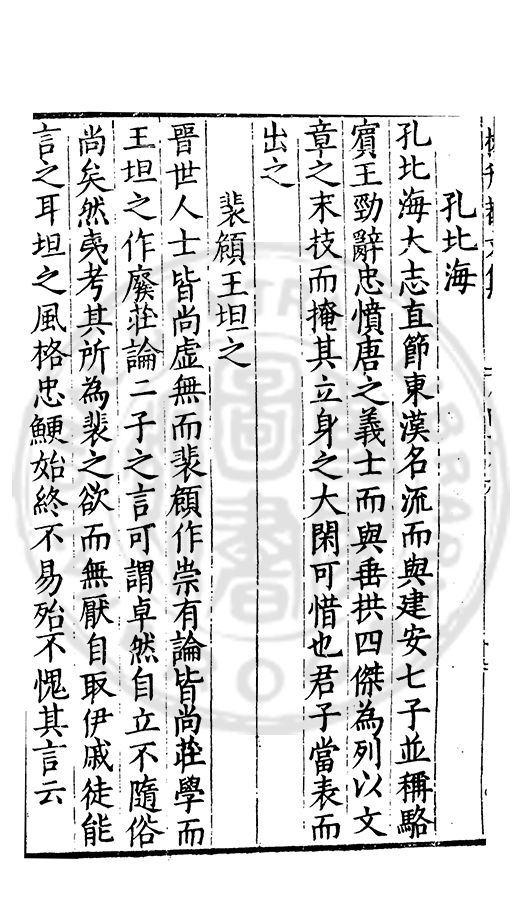 孔北海
孔北海大志直節東漢名流而與建安七子並稱駱
賓王勁辭忠憤唐之義士而與垂拱四傑為列以文
章之末技而掩其立身之大閑可惜也君子當表而
出之
裴頠王坦之
晉世人士皆尚虛無而裴頠作崇有論皆尚莊學而
王坦之作廢莊論二子之言可謂卓然自立不隨俗
尚矣然夷考其所為裴之欲而無厭自取伊戚徒能
言之耳坦之風格忠鯁始終不易殆不愧其言云